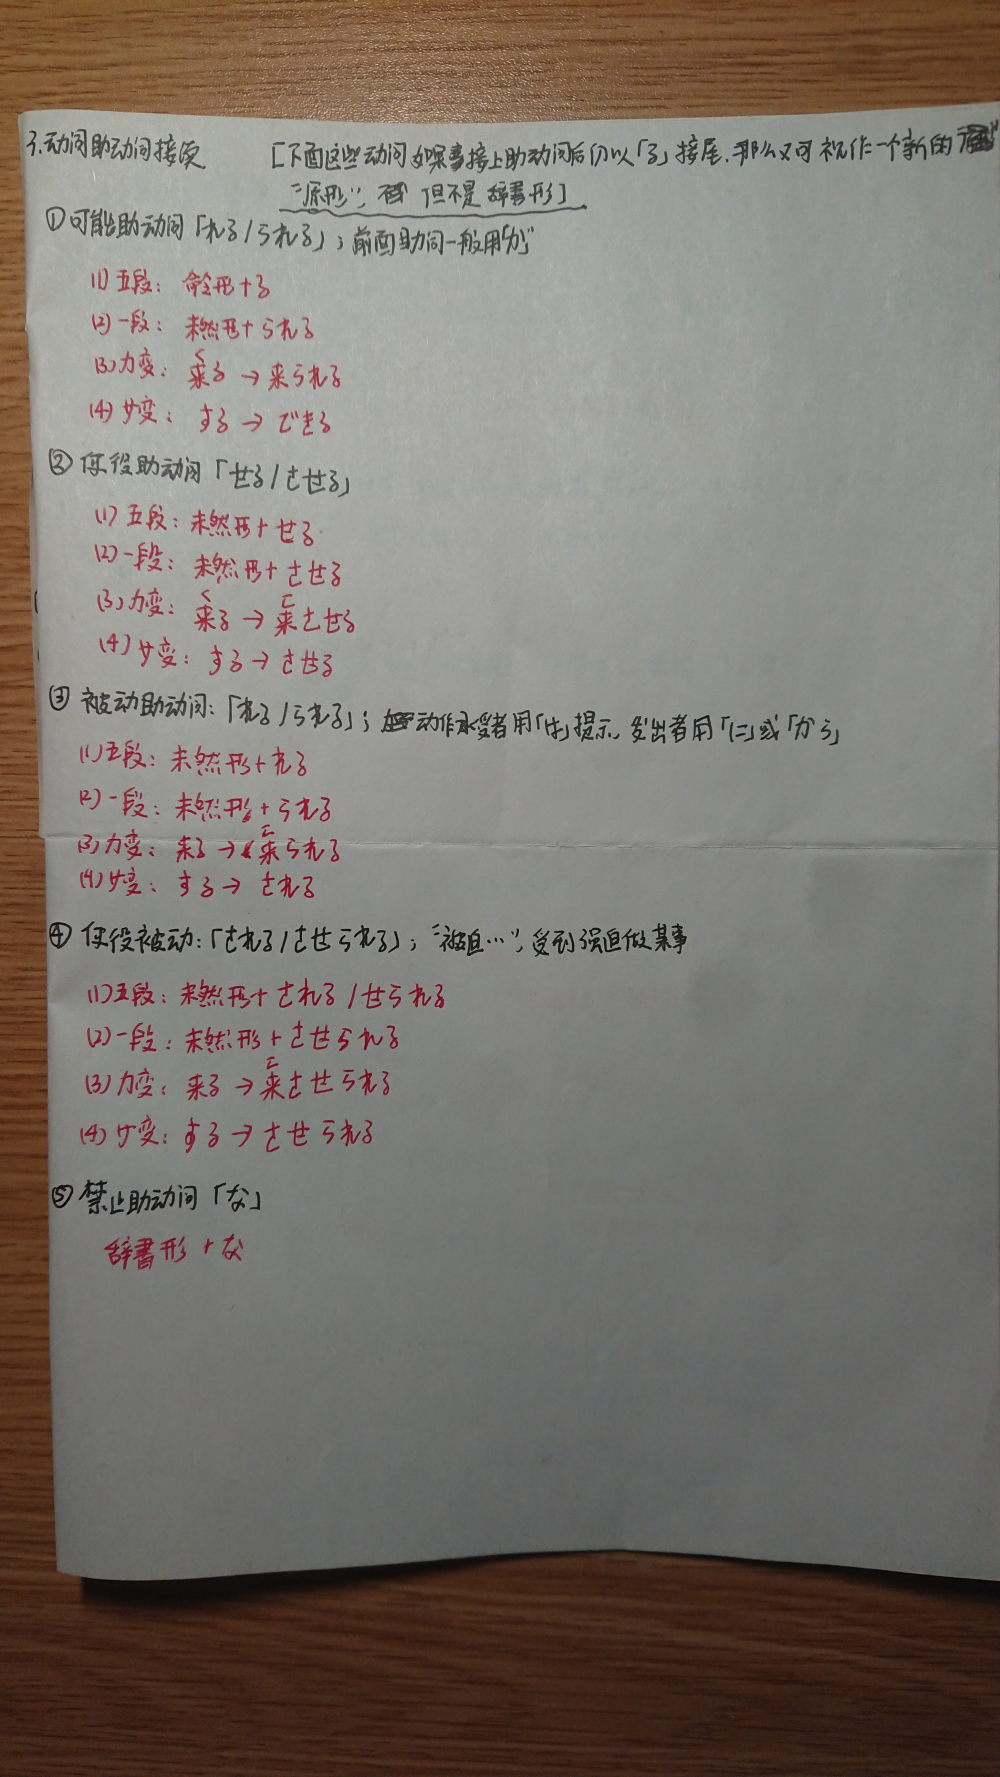 3.动词助动词接续 [下面这些动词如果接上助动词后仍以「る」接尾,那么又可视作一个新的
"原形", 但不是辞書形]
①可能助动词「れる/られる」; 前面助词一般用"が"
(1)五段: 命令形+る
(2)一段: 未然形+られる
く
(3)カ変: 来る→来られる
(4)サ变: する→できる
②使役助动词「せる/させる」
(1)五段: 未然形+せる
(2)一段: 未然形+させる
く こ
(3)カ变: 来る→来させる
(4)サ变: する→させる
③被动助动词:「れる/られる」; 动作承受者用「は」提示, 发出者用「に」或「から」
(1)五段: 未然形+れる
(2)一段: 未然形+られる
こ
(3)カ变: 来る→来られる
(4)サ变: する→される
④使役被动:「される/させられる」; "被迫…", 受到强迫做某事
(1)五段: 未然形+される/せられる
(2)一段: 未然形+させられる
こ
(3)カ变: 来る→来させられる
(4)サ变: する→させられる
⑤禁止助动词「な」
辞書形+な